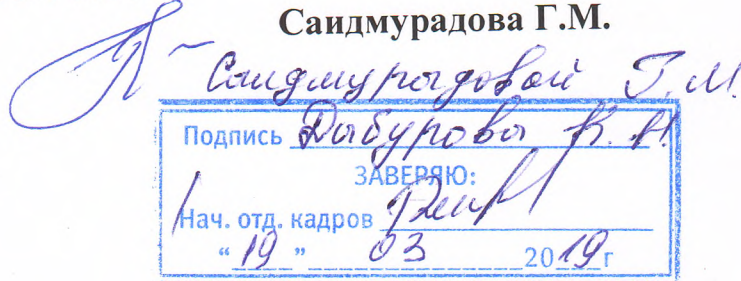 Саидмурадова Г.М.
Саидмурадовой Г.М.
Подпись Дибурова К.Н.
ЗАВЕРЯЮ:
Нач. отд. кадров
“ 19 ” 03 2019 г